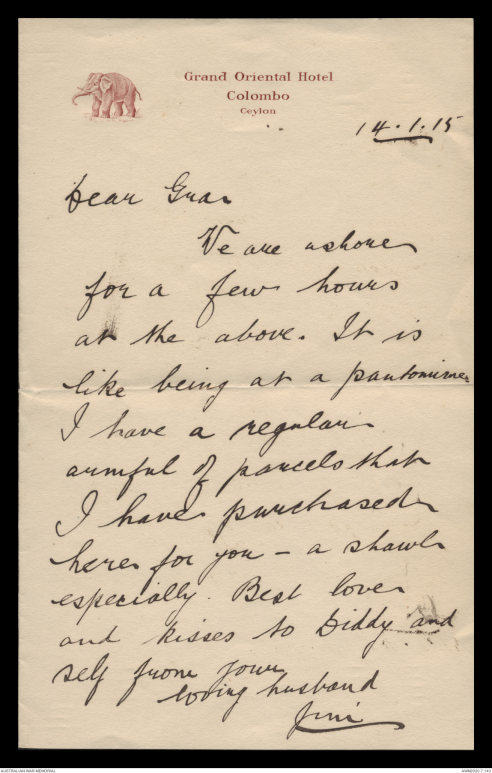 Grand Oriental Hotel
Colombo
Ceylon
14.1.15
Dear Gra
We are ashore
for a few hours
at the above. It is
like being at a pantomime
I have a regular
armful of parcels that
I have purchased
here for you – a shawl
especially. Best love
and kisses to Diddy and
self from your
loving husband
Jim
AUSTRALIAN WAR MEMORIAL